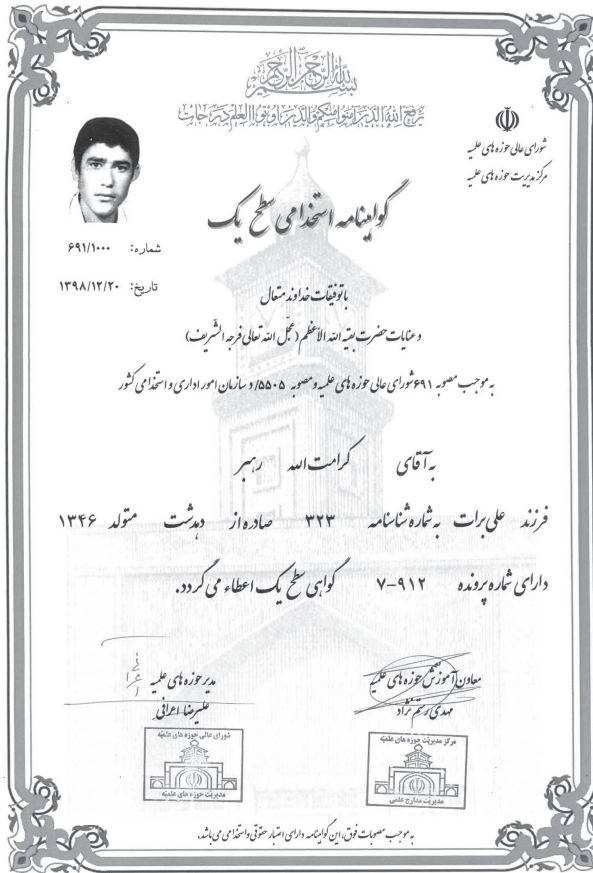 بسم الله الرحمن الرحیم
یرفع الله الذین آمنوا منکم والذین اوتوا العلم درجات
شورای عالی حوزه های علمیه
مرکز مدیریت حوزه های علمیه
گواهینامه استخدامی سطح یک
شماره: ۶۹۱/۱۰۰۰
تاریخ: ۱۳۹۸/۱۲/۲۰
باتوفیقات خداوند متعال
و عنایات حضرت بقیة الله الاعظم (عجّل الله تعالی فرجه الشّریف)
به موجب مصوبه ۶۹۱ شورای عالی حوزه های علمیه و مصوبه ۵۵۰۵/د سازمان امور اداری و استخدامی کشور
به آقای کرامت الله رهبر
فرزند علی برات به شماره شناسنامه ۳۲۳ صادره از دهدشت متولد ۱۳۴۶
دارای شماره پرونده ۹۱۲-۷ گواهی سطح یک اعطاء می گردد.
معاون آموزش حوزه های علمیه
مهدی رستم نژاد
مدیر حوزه های علمیه
علیرضا اعرافی
مرکز مدیریت حوزه های علمیه
مدیریت مدارج علمی
شورای عالی حوزه های علمیه
مدیریت حوزه های علمیه
به موجب مصوبات فوق، این گواهینامه دارای اعتبار حقوقی و استخدامی می باشد.